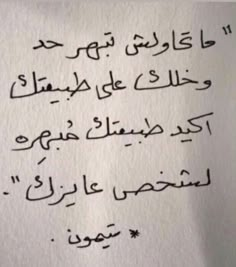 "ما تحاولش تبهر حد
وخلك على طبيعتك
اكيد طبيعتك مُبهِره
لشخص عايزك".
* تيمون .